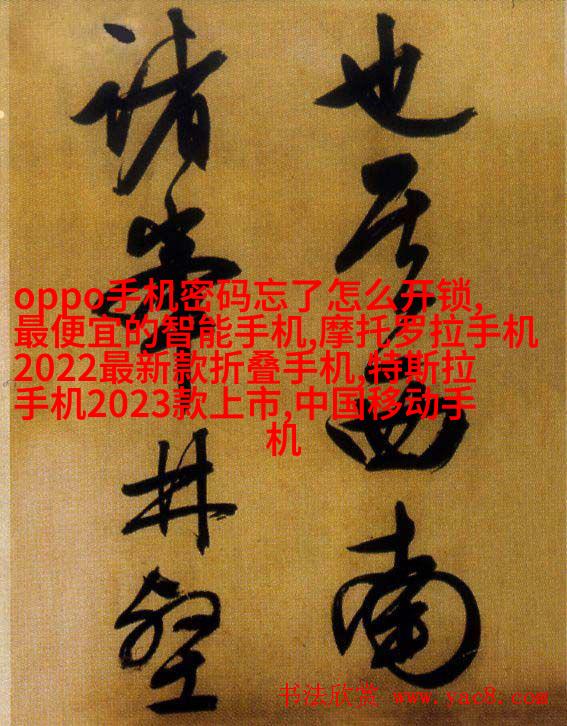 也其西南
諸峯林壑
oppo手机密码忘了怎么开锁,
最便宜的智能手机,摩托罗拉手机
2022最新款折叠手机,特斯拉
手机2023款上市,中国移动手
机
书法欣赏 www.yac8.com